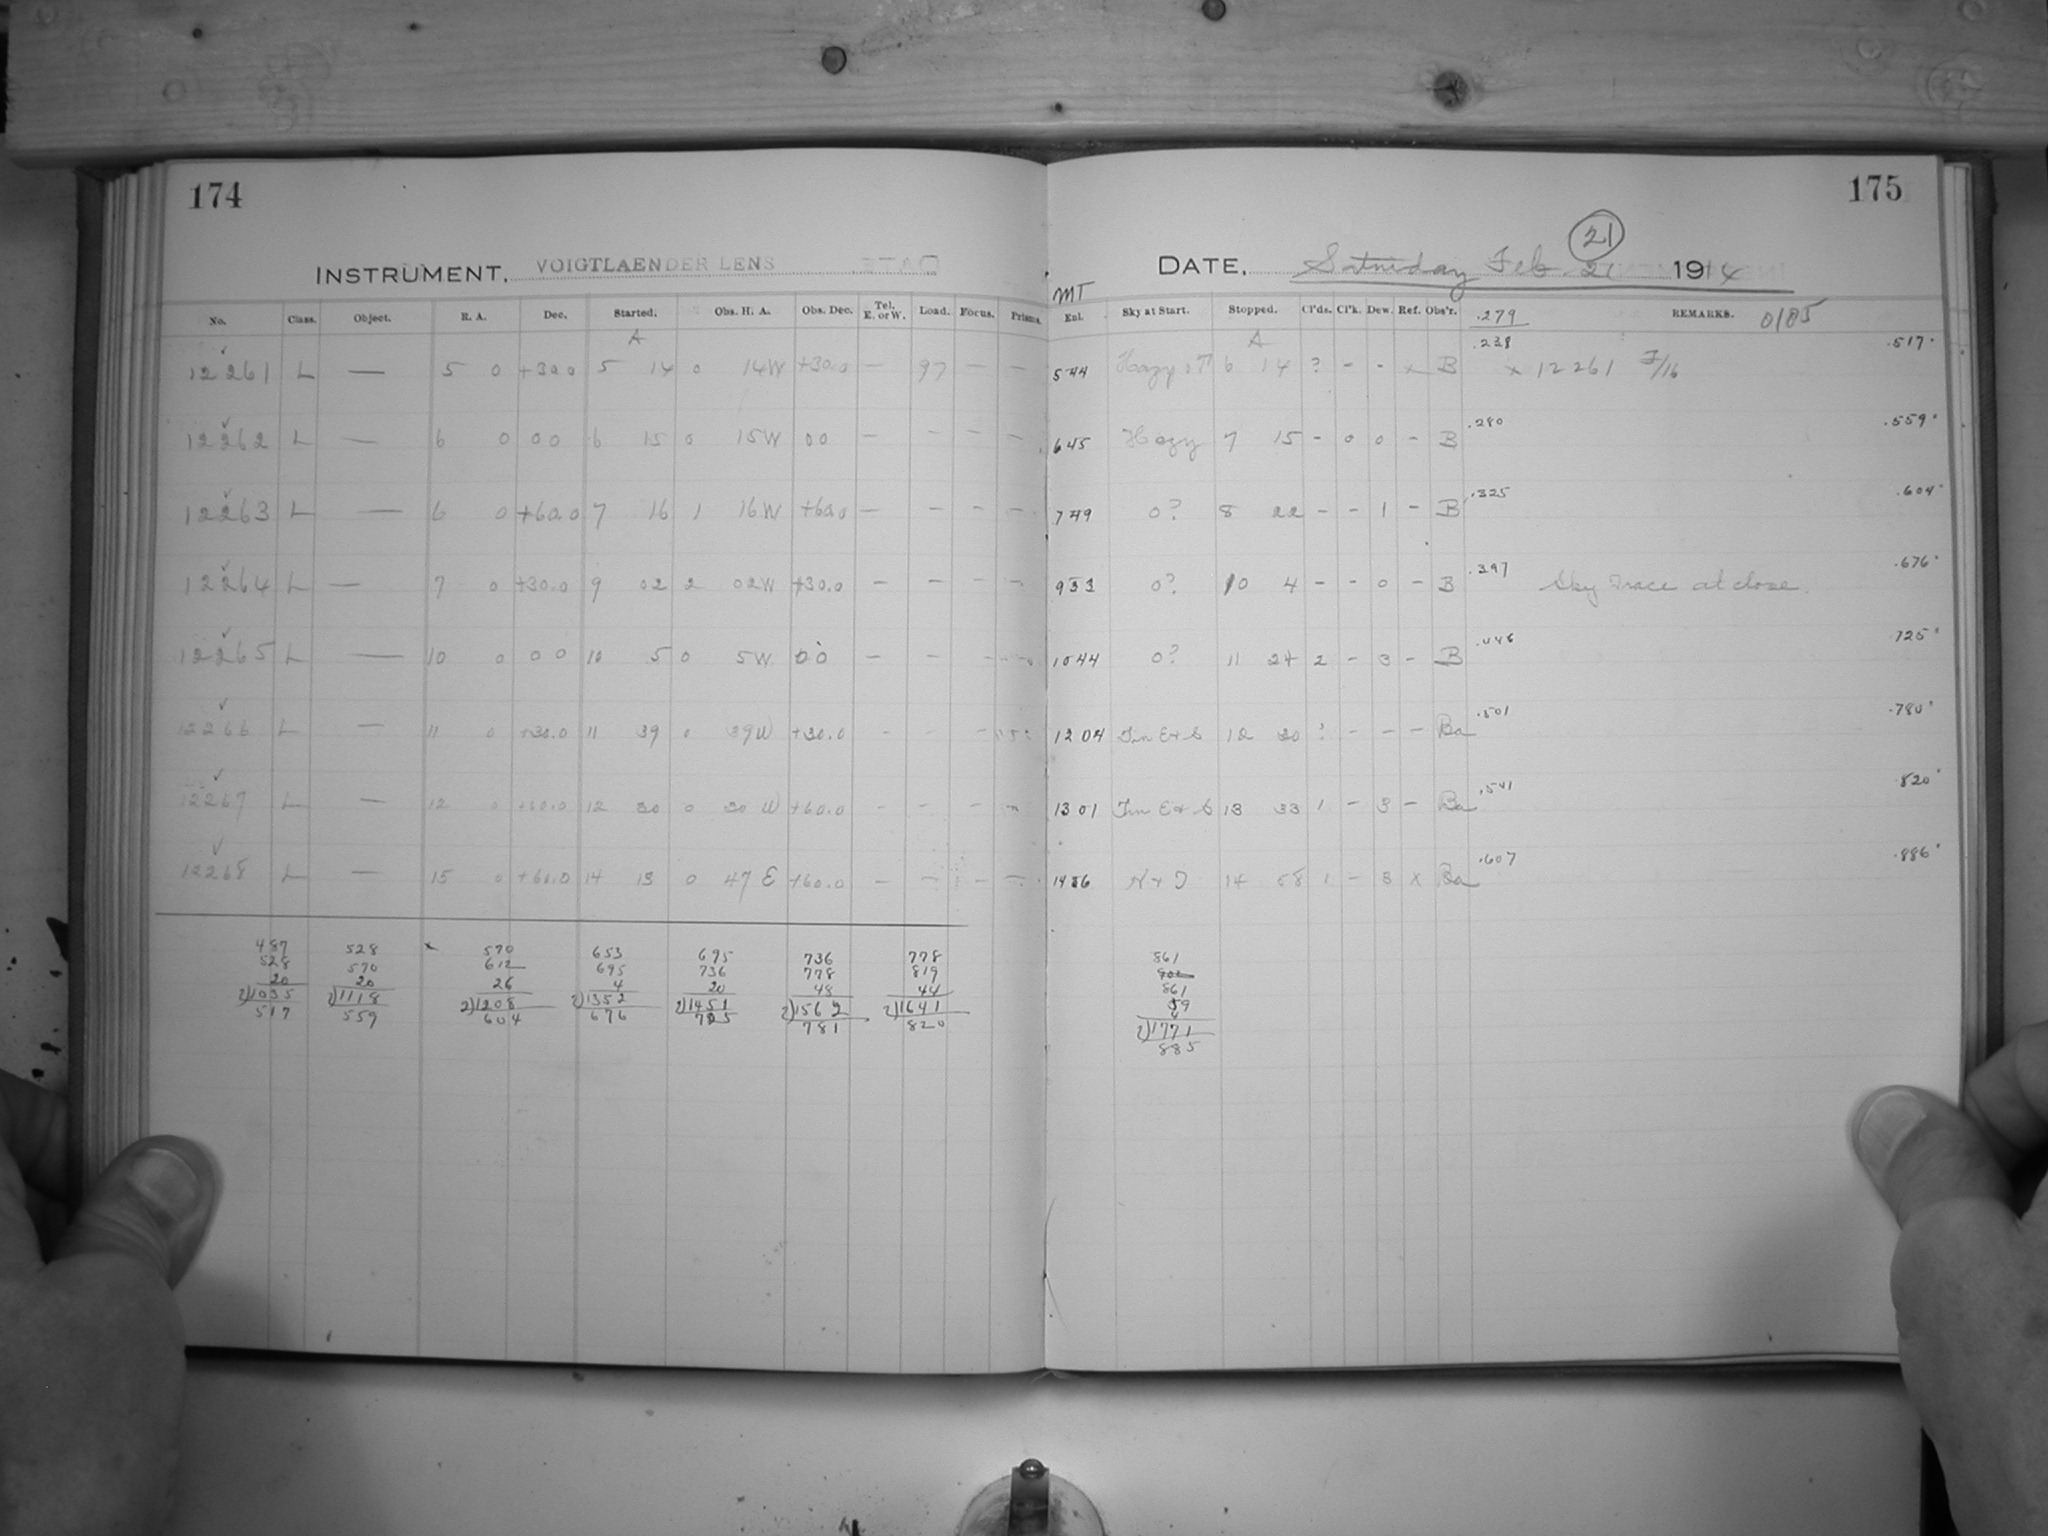 174
175
INSTRUMENT, VOIGTLAENDER LENS
DATE, Saturday Feb 21 1914
21
MT
No. Class. Object. R. A. Dec. Started. Obs. H. A. Obs. Dec. Tel. E. or W. Load. Focus. Prisms. Enl. Sky at Start. Stopped. Cl'ds. Cl'k. Dew. Ref. Obs'r. .279 REMARKS. 0185
A A .238 .517
12261 L — 5 0 +30.0 5 14 0 14W +30.0 — 97 — — 544 Hazy 6 14 ? - - x B x 12261 F/16
.280 .559
12262 L — 6 0 00 6 15 0 15W 00 — — — — 645 Hazy 7 15 - 0 0 - B
.325 .604
12263 L — 6 0 +60.0 7 16 1 16W +60.0 — — — — 749 0? 8 22 - - 1 - B
.397 .676
12264 L — 7 0 +30.0 9 02 2 02W +30.0 — — — — 933 0? 10 4 - - 0 - B Sky Trace at close.
.446 .725
12265 L — 10 0 00 10 5 0 5W 00 — — — 1044 0? 11 24 2 - 3 - B
.501 .780
12266 L — 11 0 +30.0 11 39 0 39W +30.0 - - - 1204 Tm E+S 12 30 ? - - - Ba
.541 .820
12267 L — 12 0 +60.0 12 30 0 30 W +60.0 - - - 1301 Tm E+S 13 33 1 - 3 - Ba
.607 .886
12268 L — 15 0 +60.0 14 13 0 47 E +60.0 — — — — 1436 14 58 1 - 3 x Ba
487 528 570 653 695 736 778 861
528 570 612 695 736 778 819
20 20 26 4 20 48 44 861
2)1035 2)1118 2)1208 2)1352 2)1451 2)1562 2)1641 59
517 559 604 676 725 781 820 2)1771
885